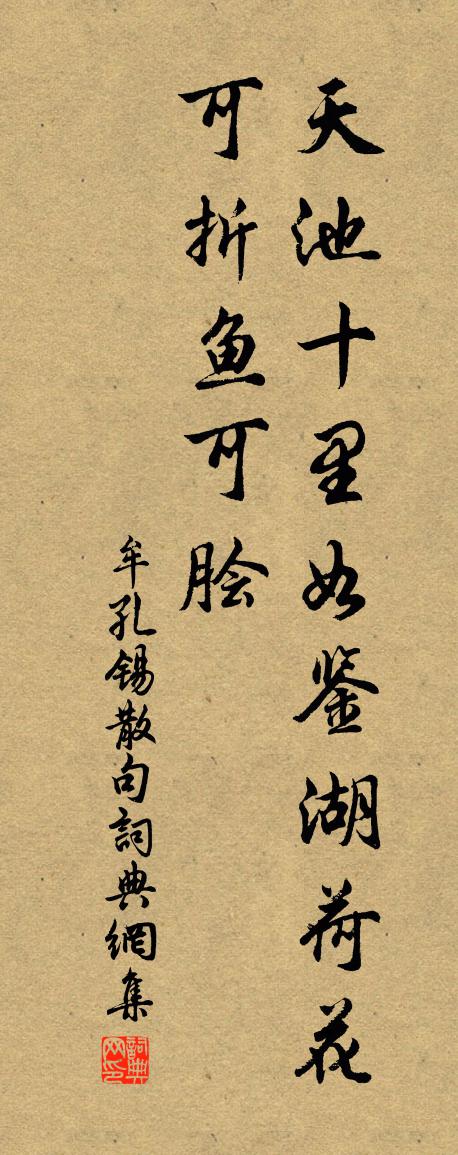 天池十里如鉴湖荷花
可折鱼可脍
牟孔锡散句詞典網集
詞典网印